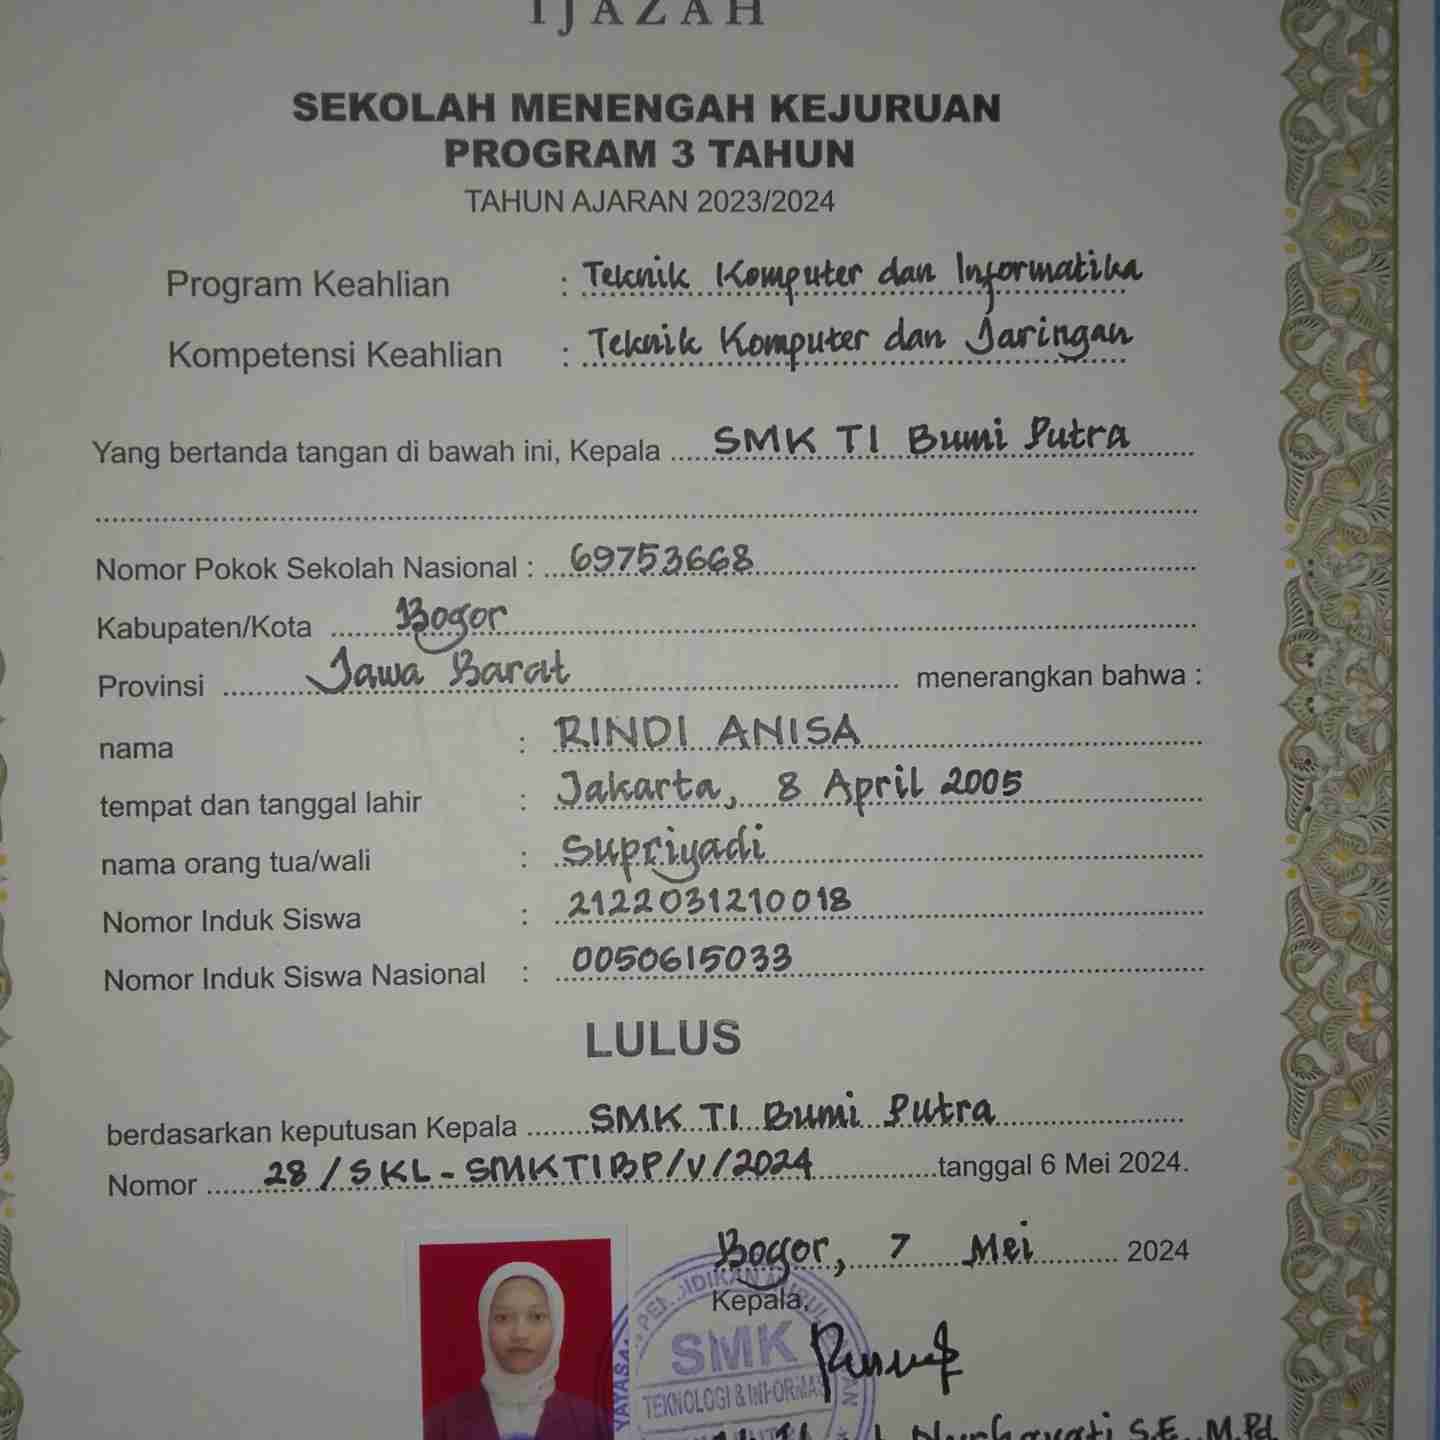 IJAZAH
SEKOLAH MENENGAH KEJURUAN
PROGRAM 3 TAHUN
TAHUN AJARAN 2023/2024
Program Keahlian : Teknik Komputer dan Informatika
Kompetensi Keahlian : Teknik Komputer dan Jaringan
Yang bertanda tangan di bawah ini, Kepala SMK TI Bumi Putra
Nomor Pokok Sekolah Nasional : 69753668
Kabupaten/Kota Bogor
Provinsi Jawa Barat menerangkan bahwa :
nama : RINDI ANISA
tempat dan tanggal lahir : Jakarta, 8 April 2005
nama orang tua/wali : Supriyadi
Nomor Induk Siswa : 2122031210018
Nomor Induk Siswa Nasional : 0050615033
LULUS
berdasarkan keputusan Kepala SMK TI Bumi Putra
Nomor 28/SKL-SMKTIBP/V/2024 tanggal 6 Mei 2024.
Bogor, 7 Mei 2024
Kepala,
SMK
TEKNOLOGI & INFORMAS
S.E., M.Pd